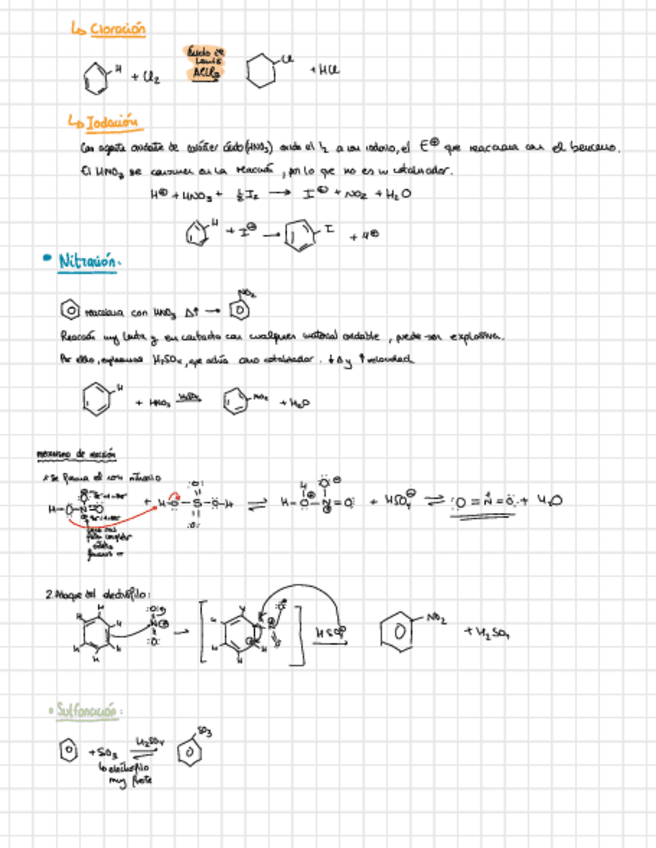 ↳ Cloración
H + Cl₂ Ácido de Lewis AlCl₃ Cl + HCl
↳ Iodación
Con agente oxidante de carácter ácido (HNO₃) oxida el I₂ a ion iodonio, el E⊕ que reacciona con el benceno.
El HNO₃ se consume en la reacción, por lo que no es un catalizador.
H⊕ + HNO₃ + ½ I₂ → I⊕ + NO₂ + H₂O
H + I⊕ → I + H⊕
• Nitración.
reacciona con HNO₃ Δ↑ → NO₂
Reacción muy lenta y en contacto con cualquier material oxidable, puede ser explosiva.
Por ello, empleamos H₂SO₄, que actúa como catalizador. ↓Δ y ↑velocidad
H + HNO₃ H₂SO₄ NO₂ + H₂O
mecanismo de reacción
Se forma el ion nitronio
H-O-N=O + H-O-S-O-H ⇌ H-O-N=O + HSO₄⊖ ⇌ :O=N=O: + H₂O
2. Ataque del electrófilo:
HSO₄⊖ NO₂ + H₂SO₄
• Sulfonación:
+ SO₃ H₂SO₄ SO₃
↳ electrófilo
muy fuerte